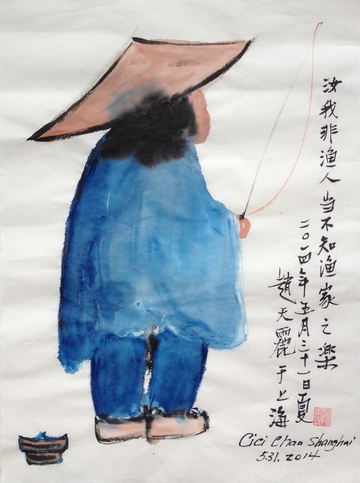 汝我非渔人当不知渔家之樂
二〇一四年五月三十一日夏
趙天麗于上海
Cici Chao Shanghai
5.31.2014